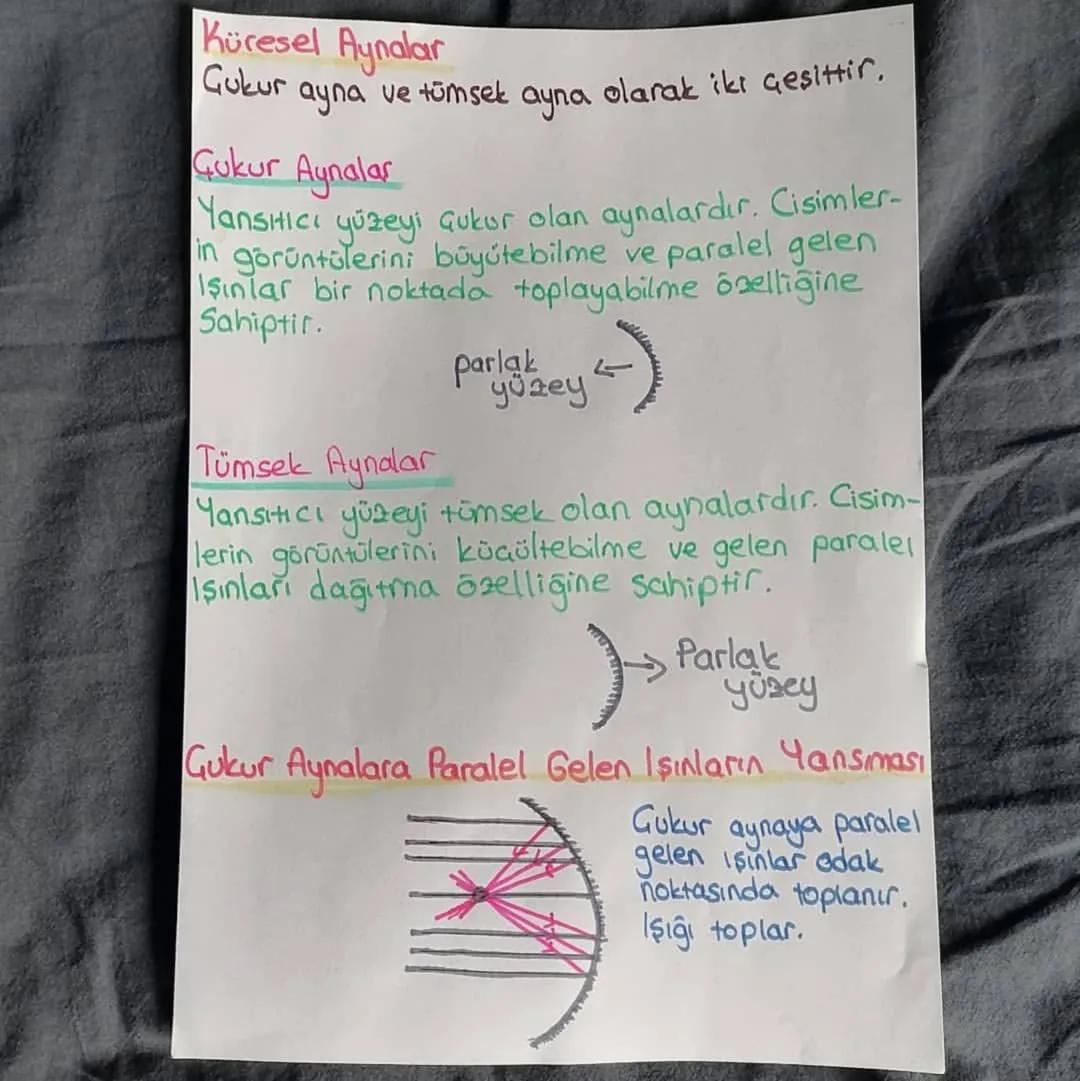 Küresel Aynalar
Çukur ayna ve tümsek ayna olarak iki çeşittir.
Çukur Aynalar
Yansıtıcı yüzeyi çukur olan aynalardır. Cisimler-
in görüntülerini büyütebilme ve paralel gelen
Işınlar bir noktada toplayabilme özelliğine
Sahiptir.
parlak
yüzey
Tümsek Aynalar
Yansıtıcı yüzeyi tümsek olan aynalardır. Cisim-
lerin görüntülerini küçültebilme ve gelen paralel
Işınları dağıtma özelliğine sahiptir.
Parlak
yüzey
Çukur Aynalara Paralel Gelen Işınların Yansıması
Çukur aynaya paralel
gelen ışınlar odak
noktasında toplanır.
Işığı toplar.